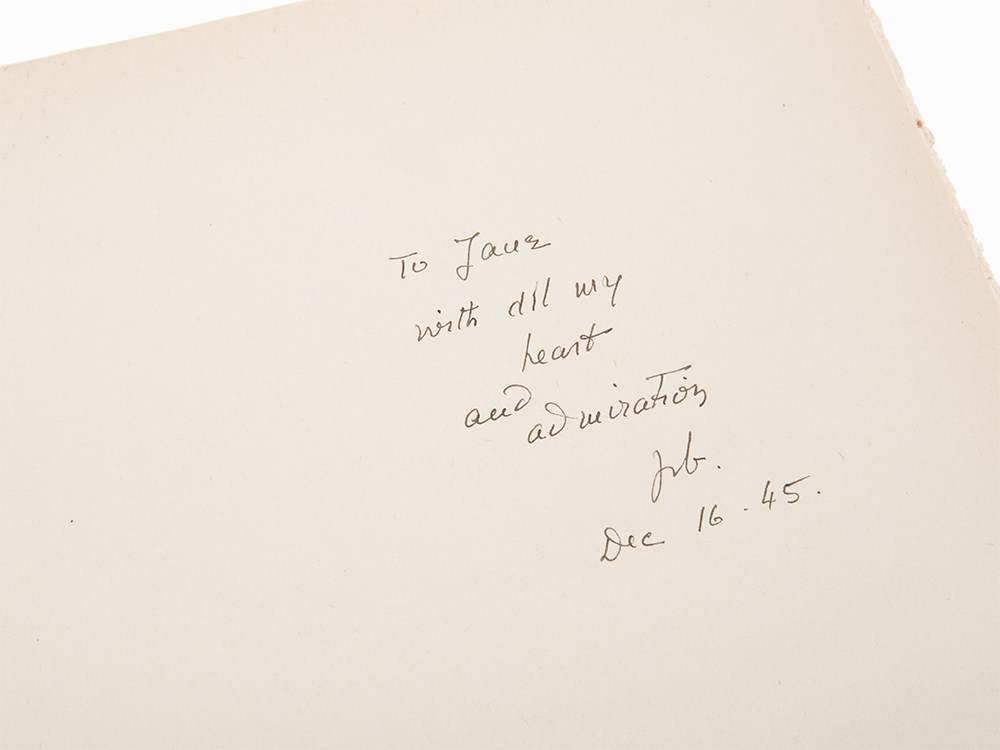 To Jane
with all my
heart
and admiration
Dec 16 - 45.